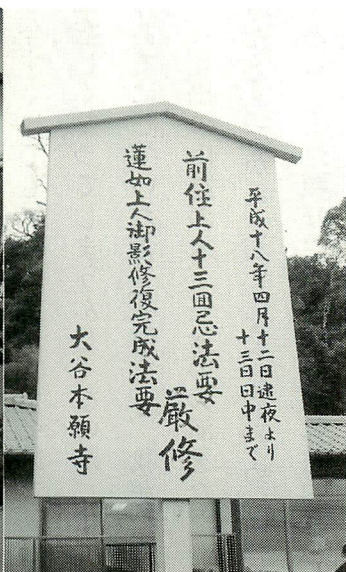 平成十八年四月十二日逮夜より
十三日日中まで
前住上人十三囬忌法要
蓮如上人御影修復完成法要
厳修
大谷本願寺